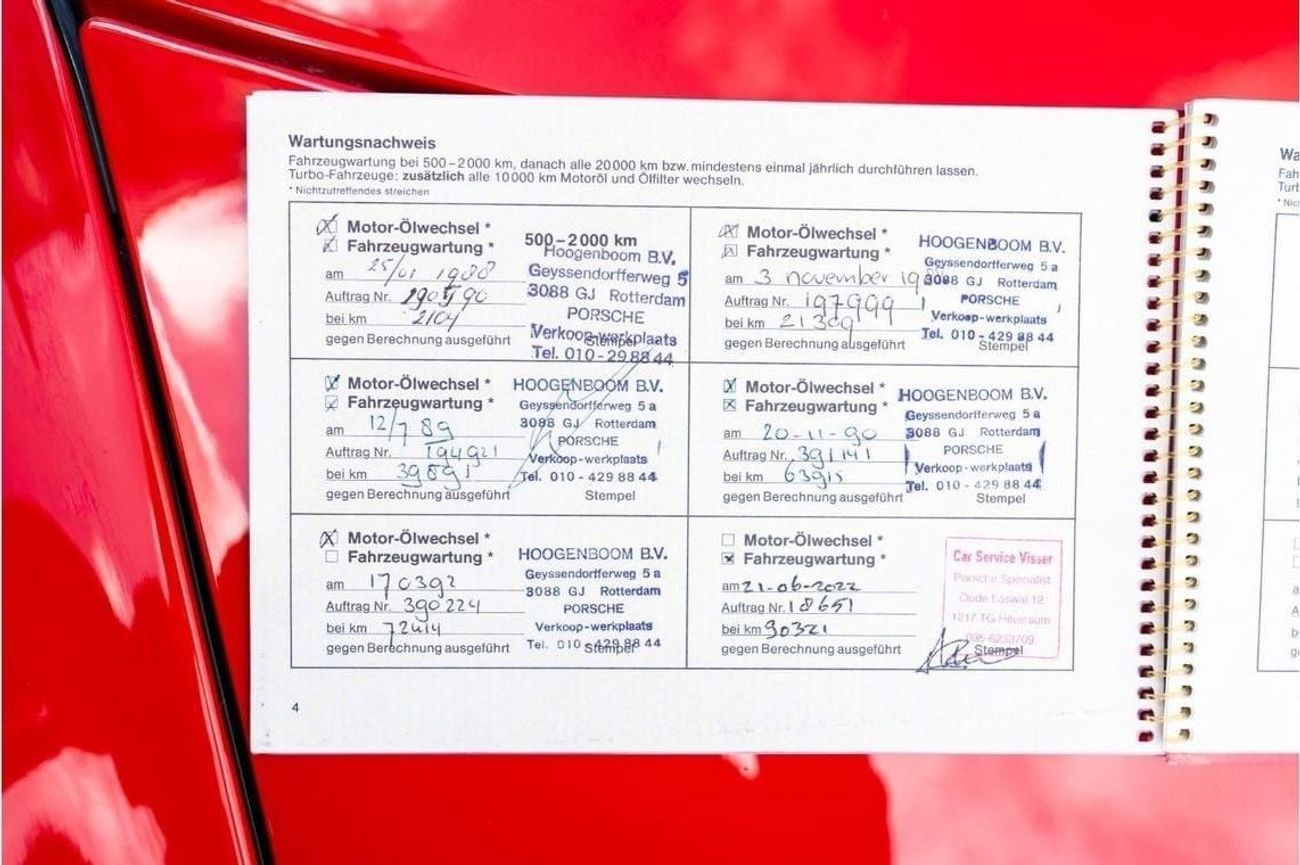 Wartungsnachweis
Fahrzeugwartung bei 500–2000 km, danach alle 20000 km bzw. mindestens einmal jährlich durchführen lassen.
Turbo-Fahrzeuge: zusätzlich alle 10000 km Motoröl und Ölfilter wechseln.
* Nichtzutreffendes streichen
Motor-Ölwechsel *
Fahrzeugwartung *
500–2000 km
am 25/01 1988
Auftrag Nr.
bei km 2104
gegen Berechnung ausgeführt
Hoogenboom B.V.
Geyssendorfferweg 5
3088 GJ Rotterdam
PORSCHE
Verkoop-werkplaats
Stempel
Tel. 010-29 88 44
Motor-Ölwechsel *
Fahrzeugwartung *
am 3 november
Auftrag Nr. 197999
bei km 21309
gegen Berechnung ausgeführt
HOOGENBOOM B.V.
Geyssendorfferweg 5 a
3088 GJ Rotterdam
PORSCHE
Verkoop-werkplaats
Tel. 010-429 88 44
Stempel
Motor-Ölwechsel *
Fahrzeugwartung *
am 12/7 89
Auftrag Nr. 194921
bei km 39891
gegen Berechnung ausgeführt
HOOGENBOOM B.V.
Geyssendorfferweg 5 a
3088 GJ Rotterdam
PORSCHE
Verkoop-werkplaats
Tel. 010-429 88 44
Stempel
Motor-Ölwechsel *
Fahrzeugwartung *
am 20-11-90
Auftrag Nr. 391141
bei km 63915
gegen Berechnung ausgeführt
HOOGENBOOM B.V.
Geyssendorfferweg 5 a
3088 GJ Rotterdam
PORSCHE
Verkoop-werkplaats
Tel. 010-429 88 44
Stempel
Motor-Ölwechsel *
Fahrzeugwartung *
am 170392
Auftrag Nr. 390224
bei km 72414
gegen Berechnung ausgeführt
HOOGENBOOM B.V.
Geyssendorfferweg 5 a
3088 GJ Rotterdam
PORSCHE
Verkoop-werkplaats
Tel. 010-429 88 44
Stempel
Motor-Ölwechsel *
Fahrzeugwartung *
am 21-06-2022
Auftrag Nr. 18651
bei km 90321
gegen Berechnung ausgeführt
Car Service Visser
Porsche Specialist
Oude Loswal 12
1217 TG Hilversum
035-6233709
Stempel
4